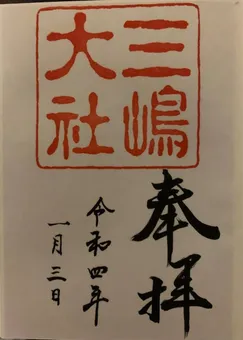 三嶋
大社
奉拝
令和四年
一月三日